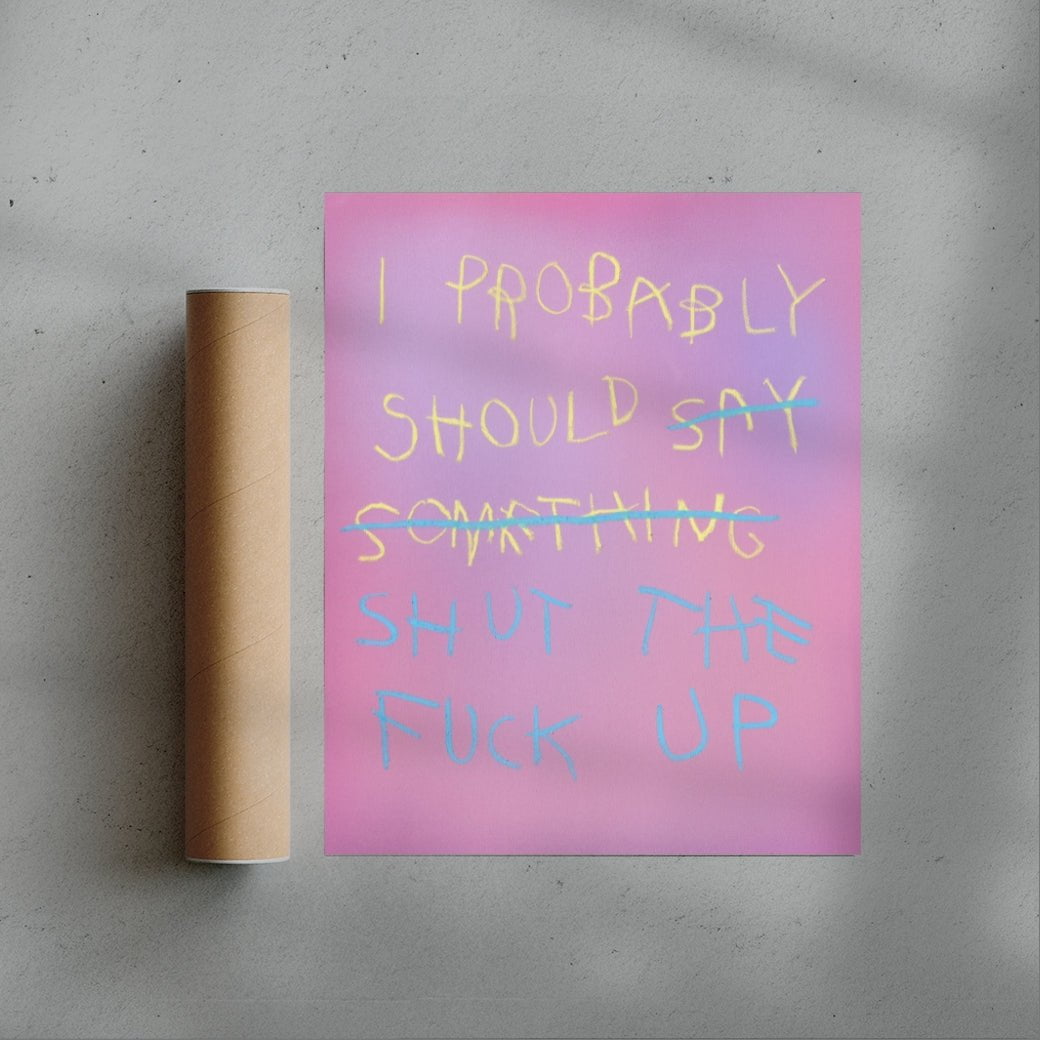 I PROBABLY
SHOULD SAY
SOMETHING
SHUT THE
FUCK UP